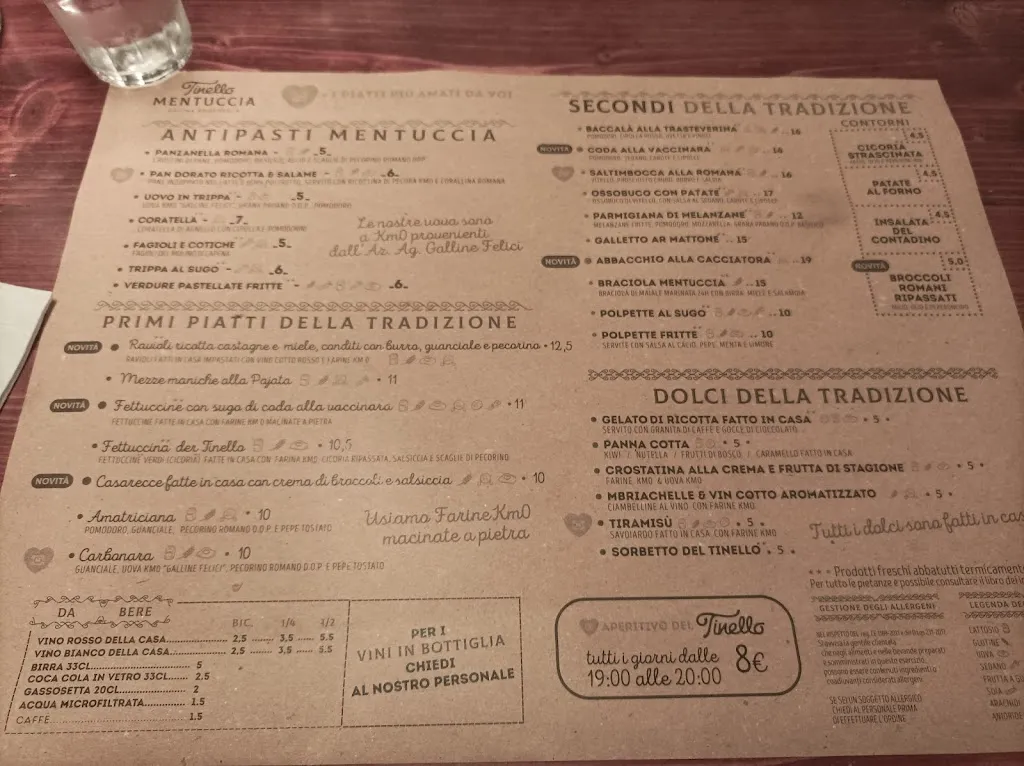 Tinello
MENTUCCIA
= I PIATTI PIÙ AMATI DA VOI
ANTIPASTI MENTUCCIA
• PANZANELLA ROMANA - 5
• PAN DORATO RICOTTA E SALAME - 6
• UOVO IN TRIPPA - 5
• CORATELLA - 7
• FAGIOLI E COTICHE - 5
• TRIPPA AL SUGO - 6
• VERDURE PASTELLATE FRITTE - 6
Le nostre uova sono
a Km0 provenienti
dall'Az. Ag. Galline Felici
PRIMI PIATTI DELLA TRADIZIONE
NOVITÀ • Ravioli ricotta castagne e miele, conditi con burro, guanciale e pecorino • 12,5
RAVIOLI FATTI IN CASA IMPASTATI CON VINO COTTO ROSSO E FARINE KM 0
• Mezze maniche alla Pajata • 11
NOVITÀ • Fettuccine con sugo di coda alla vaccinara • 11
FETTUCCINE FATTE IN CASA CON FARINE KM 0 MACINATE A PIETRA
• Fettuccine der Tinello • 10,5
FETTUCCINE VERDI (CICORIA) FATTE IN CASA CON FARINA KM0, CICORIA RIPASSATA, SALSICCIA E SCAGLIE DI PECORINO
NOVITÀ • Casarecce fatte in casa con crema di broccoli e salsiccia • 10
• Amatriciana • 10
POMODORO, GUANCIALE, PECORINO ROMANO D.O.P. E PEPE TOSTATO
Usiamo Farine Km0
macinate a pietra
• Carbonara • 10
GUANCIALE, UOVA KM0 "GALLINE FELICI", PECORINO ROMANO D.O.P. E PEPE TOSTATO
DA BERE
BIC. 1/4 1/2
VINO ROSSO DELLA CASA 2,5 3,5 5,5
VINO BIANCO DELLA CASA 2,5 3,5 5,5
BIRRA 33CL 5
COCA COLA IN VETRO 33CL 2,5
GASSOSETTA 20CL 2
ACQUA MICROFILTRATA 1.5
CAFFE 1.5
PER I
VINI IN BOTTIGLIA
CHIEDI
AL NOSTRO PERSONALE
SECONDI DELLA TRADIZIONE
• BACCALÀ ALLA TRASTEVERINA 16
NOVITÀ • CODA ALLA VACCINARA 16
• SALTIMBOCCA ALLA ROMANA 16
• OSSOBUCO CON PATATE 17
• PARMIGIANA DI MELANZANE 12
• GALLETTO AR MATTONE 15
NOVITÀ • ABBACCHIO ALLA CACCIATORA 19
• BRACIOLA MENTUCCIA 15
BRACIOLA DI MAIALE MARINATA 24H CON BIRRA, MIELE E SALAMOIA
• POLPETTE AL SUGO 10
• POLPETTE FRITTE 10
SERVITE CON SALSA AL CACIO, PEPE, MENTA E LIMONE
CONTORNI
4,5
CICORIA
STRASCINATA
4,5
PATATE
AL FORNO
4,5
INSALATA
DEL
CONTADINO
NOVITÀ 5,0
BROCCOLI
ROMANI
RIPASSATI
DOLCI DELLA TRADIZIONE
• GELATO DI RICOTTA FATTO IN CASA • 5 •
SERVITO CON GRANITA DI CAFFE E GOCCE DI CIOCCOLATO
• PANNA COTTA • 5 •
KIWI / NUTELLA / FRUTTI DI BOSCO / CARAMELLO FATTO IN CASA
• CROSTATINA ALLA CREMA E FRUTTA DI STAGIONE • 5 •
FARINE KM0 & UOVA KM0
• MBRIACHELLE & VIN COTTO AROMATIZZATO • 5 •
CIAMBELLINE AL VINO CON FARINE KM0
• TIRAMISÙ • 5 •
SAVOIARDO FATTO IN CASA CON FARINE KM0
• SORBETTO DEL TINELLO • 5 •
Tutti i dolci sono fatti in cas
*** Prodotti freschi abbattuti termicament
Per tutte le pietanze è possibile consultare il libro dei in
APERITIVO DEL Tinello
tutti i giorni dalle
19:00 alle 20:00
8€
GESTIONE DEGLI ALLERGENI
SE SEI UN SOGGETTO ALLERGICO
CHIEDI AL PERSONALE PRIMA
DI EFFETTUARE L'ORDINE
LEGENDA DE
LATTOSIO
GLUTINE
UOVA
SEDANO
FRUTTA A GU
SOIA
ARACHIDI
ANIDRIDE